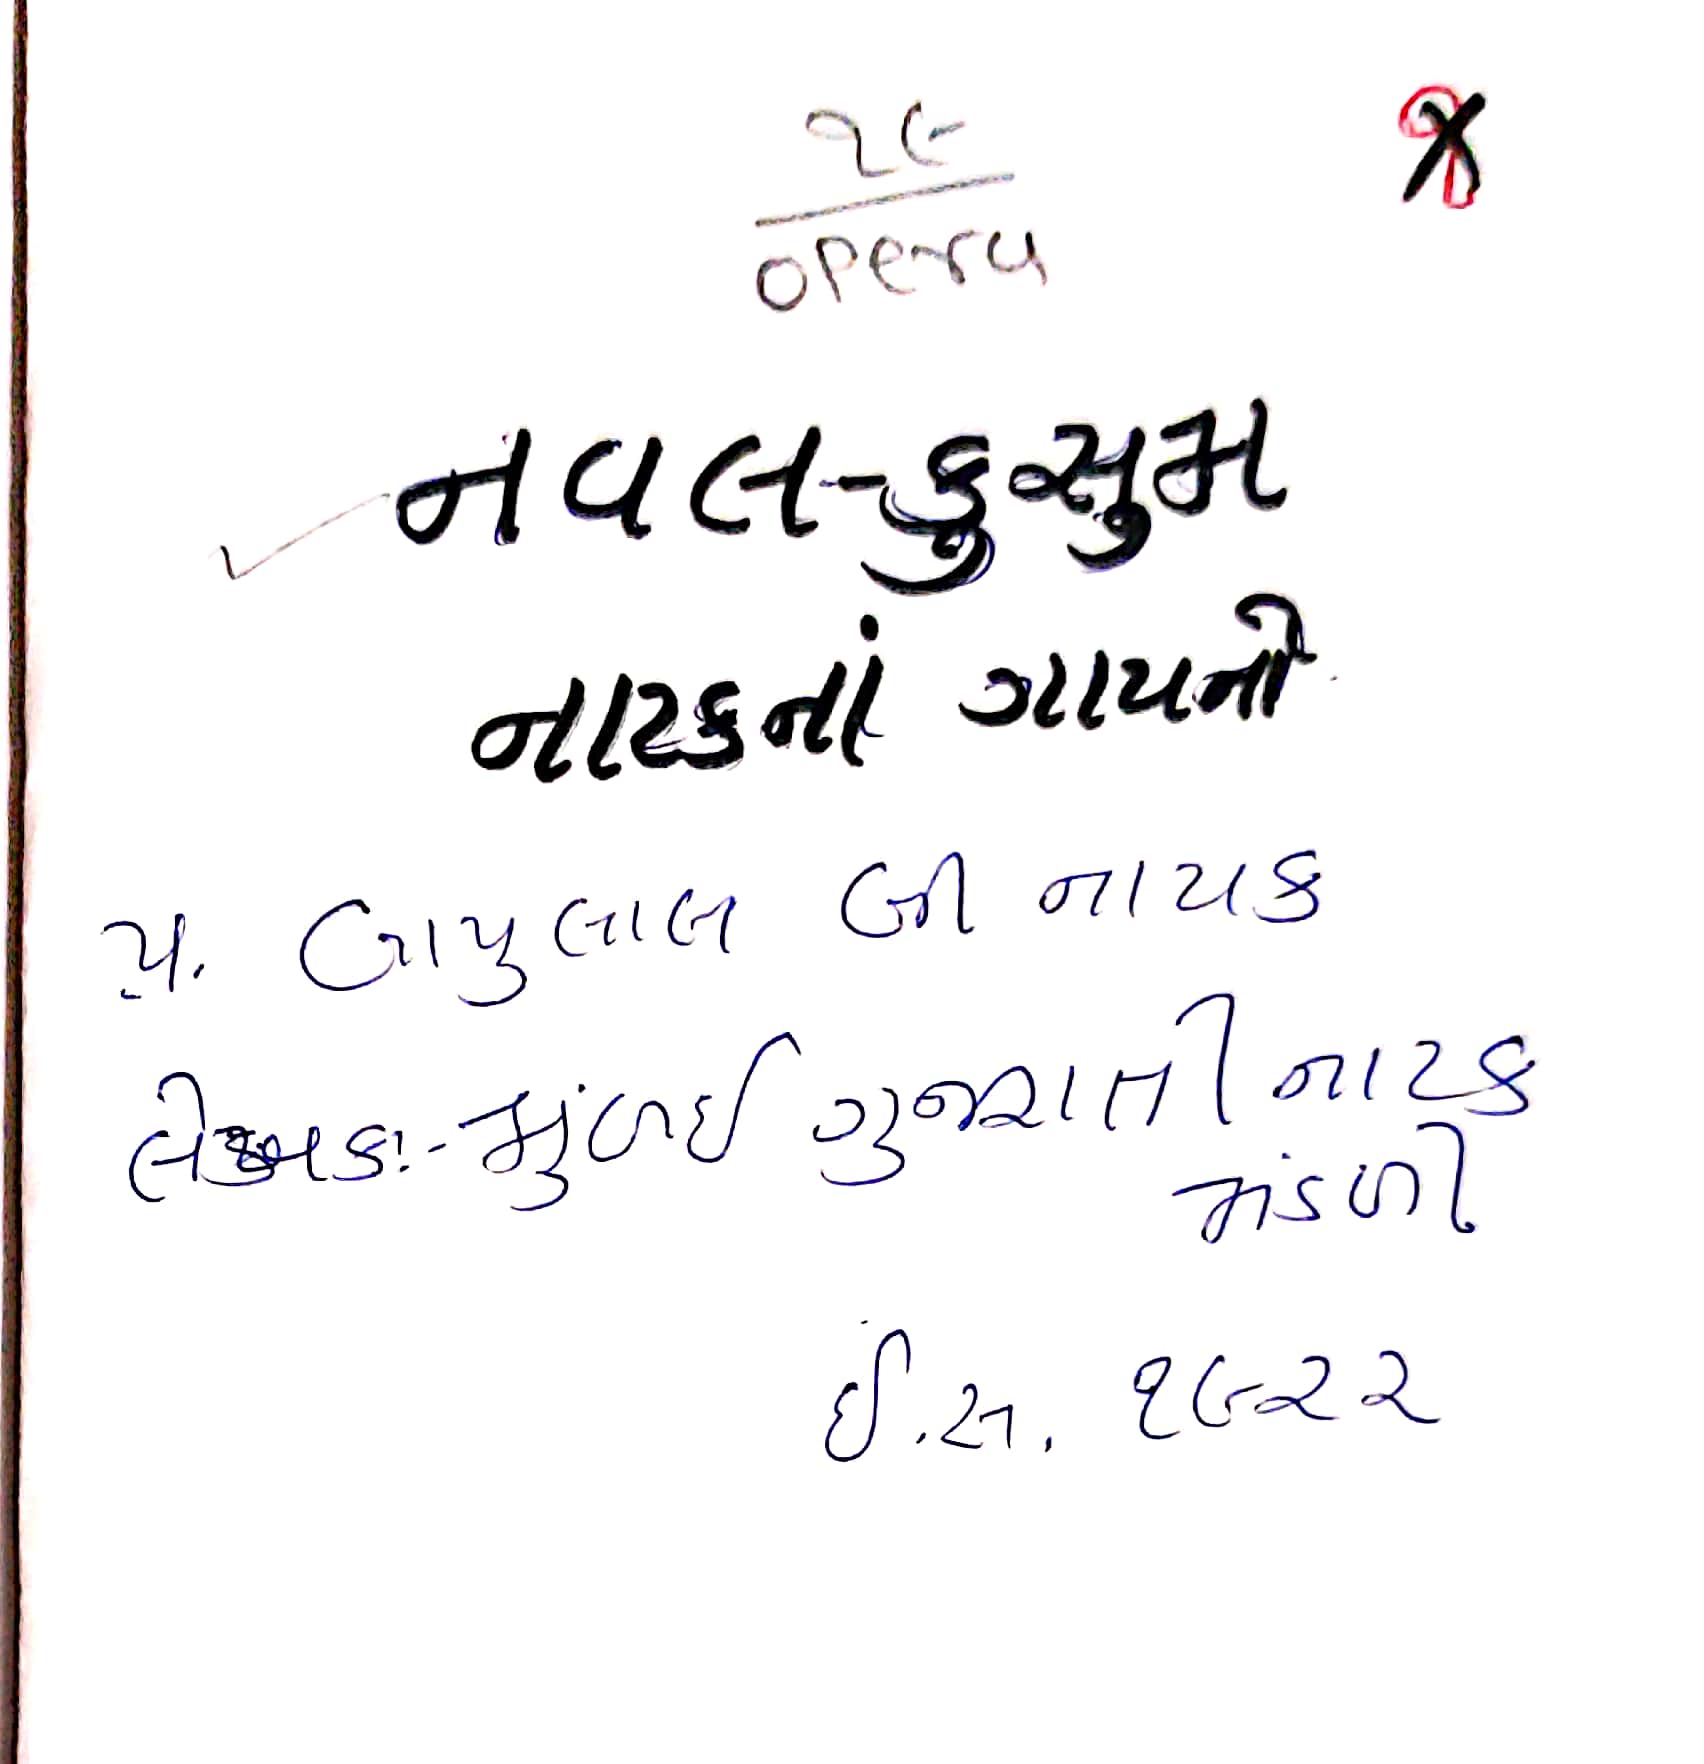 ૧૯
opera
નવલ-કુસુમ
નાટકનાં ગાયનો
પ્ર. બાપુલાલ બી નાયક
લેખક:- મુંબઈ ગુજરાતી નાટક
મંડળી
ઈ.સ. ૧૯૨૨